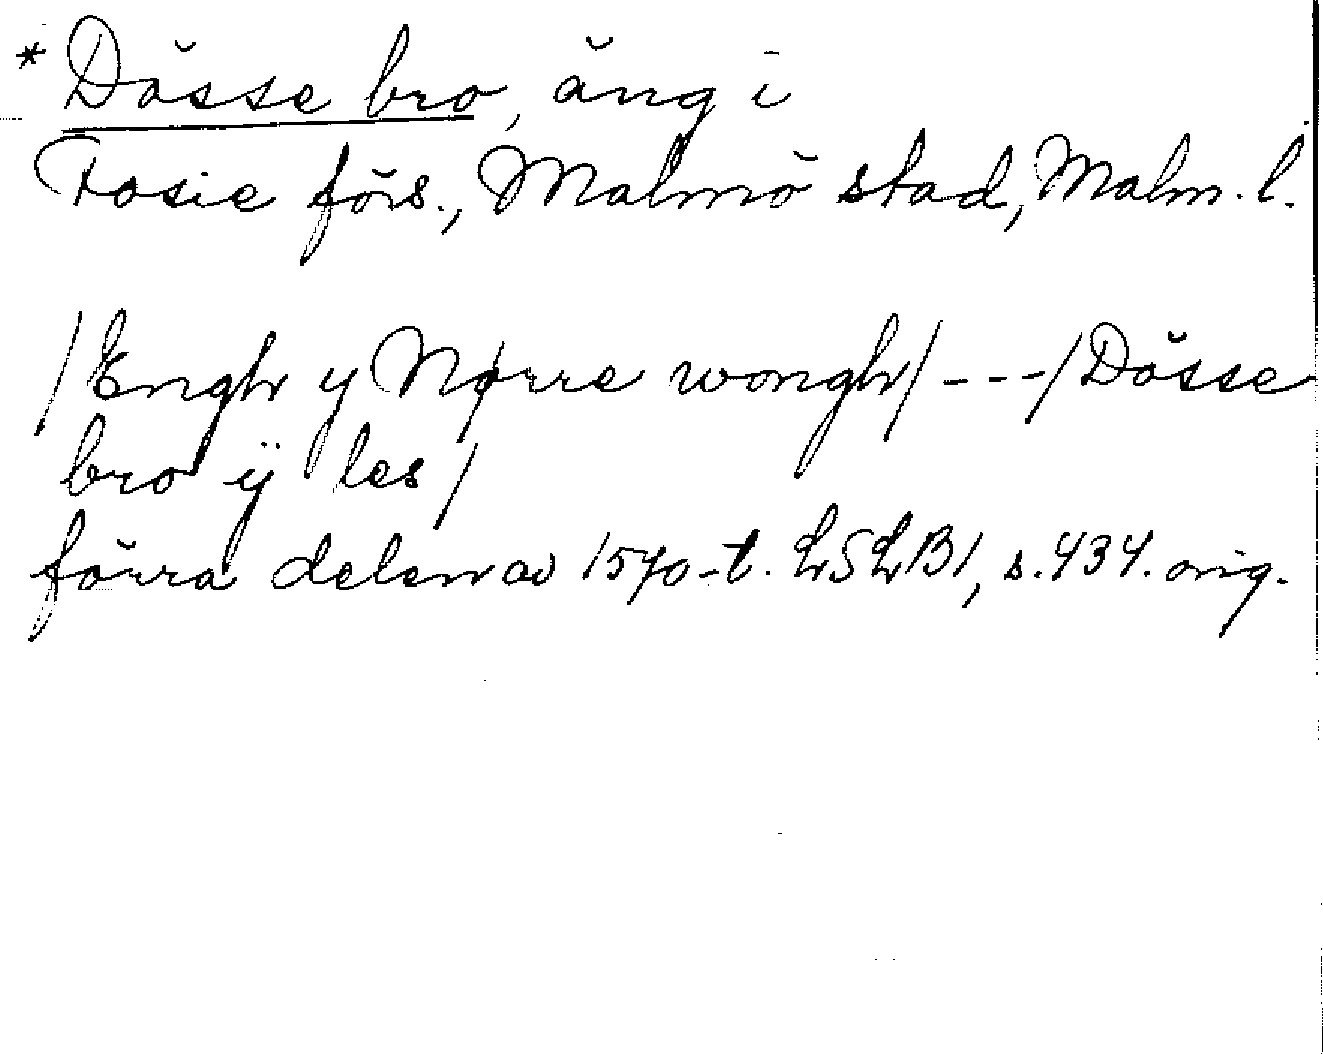 * Dösse bro, äng i
Fosie förs., Malmö stad, Malm. l.
/Engh y Nørre wongh/ - - - /Dösse
bro ÿ les/
förra delen av 1570-t. LSLB1, s. 434. orig.